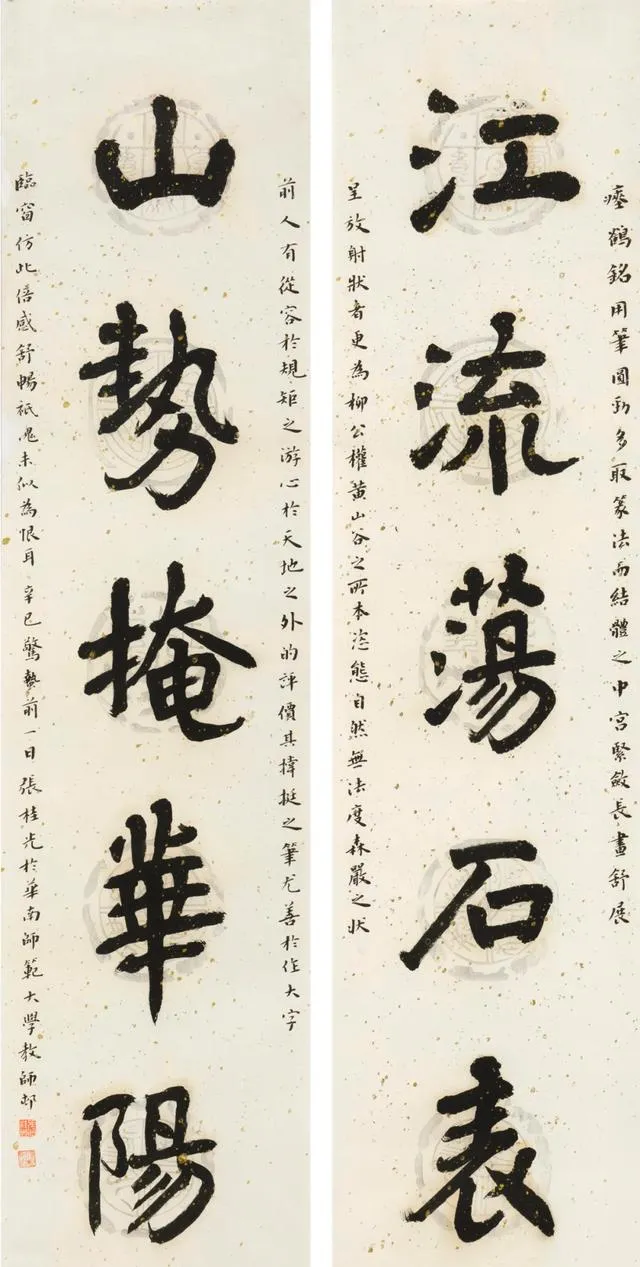 瘞鶴銘用筆圓勁多取篆法而結體之中宮緊斂長畫舒展
江流蕩石表
呈放射狀者更為柳公權黃山谷之所本恣態自然無法度森嚴之狀
前人有從容於規矩之游心於天地之外的評價其挺之筆尤善於作大字
山勢掩華陽
臨窗仿此倍感舒暢祇愧未似為恨耳 辛巳驚蟄前一日張桂光於華南師範大學教師邨